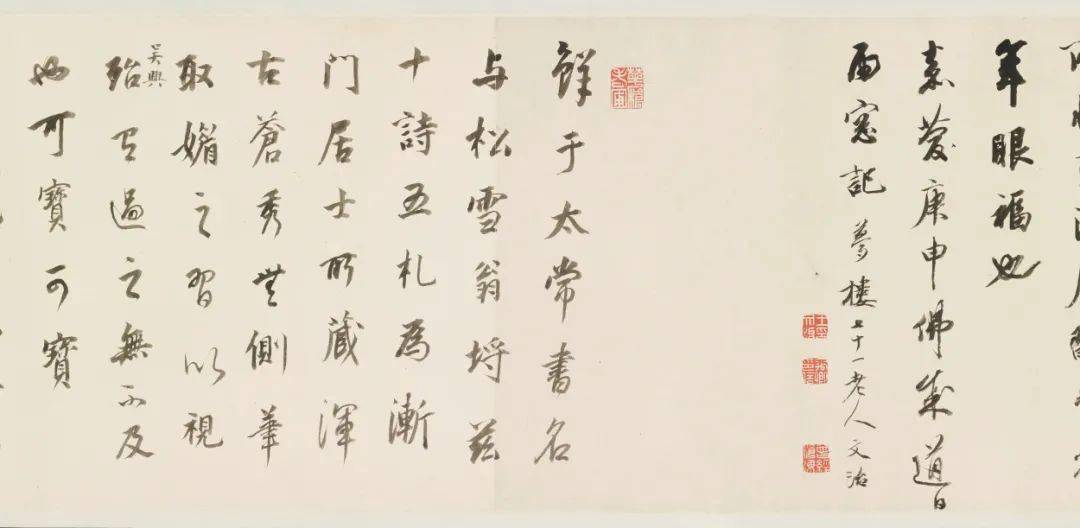 年眼福也
嘉慶庚申佛成道日
雨窓記 夢樓七十一老人文治
鮮于太常書名
与松雪翁埒茲
十詩五札為漸
門居士所藏渾
古蒼秀無側華
取媚之習以視
吳興
殆有過之無不及
也可寶可寶